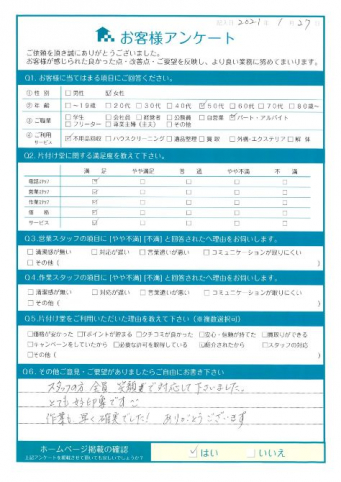 記入日 2021年 1月27日
お客様アンケート
ご依頼を頂き誠にありがとうございました。
お客様が感じられた良かった点・改善点・ご要望を反映し、より良い業務に努めてまいります。
Q1. お客様に当てはまる項目にご回答ください。
① 性 別 □男性 ☑女性
② 年 齢 □~19歳 □20代 □30代 □40代 ☑50代 □60代 □70代 □80歳~
③ ご職業 □学生 □会社員 □経営者 □公務員 □自営業 ☑パート・アルバイト
□フリーター □専業主婦(主夫) □その他
④ ご利用サービス ☑不用品回収 □ハウスクリーニング □遺品整理 □買取 □外構・エクステリア □解体
Q2. 片付け堂に関する満足度を教えて下さい。
満 足 やや満足 普 通 やや不満 不 満
電話スタッフ ☑ □ □ □ □
営業スタッフ ☑ □ □ □ □
作業スタッフ ☑ □ □ □ □
価 格 ☑ □ □ □ □
サービス ☑ □ □ □ □
Q3.営業スタッフの項目に[やや不満][不満]と回答されたへ理由をお伺いします。
□清潔感が無い □対応が遅い □言葉遣いが悪い □コミュニケーションが取りにくい
□その他(
Q4.作業スタッフの項目に[やや不満][不満]と回答されたへ理由をお伺いします。
□清潔感が無い □対応が遅い □言葉遣いが悪い □コミュニケーションが取りにくい
□その他(
Q5.片付け堂をご利用いただいた理由を教えて下さい(※複数選択可)
□価格が安かった □Tポイントが貯まる □クチコミが良かった □安心・信頼が持てた □間取りができる
□キャンペーンをしていたから □必要な許可を取得している □紹介されたから □スタッフの対応
□その他(
Q6. その他ご意見・ご要望がありましたらご自由にお書き下さい
スタッフの方 全員 笑顔で対応して下さいました。
とても好印象です
作業も早く確実でした! ありがとうございます
ホームページ掲載の確認
上記アンケートを掲載させて頂いても宜しいでしょうか?
☑はい □いいえ